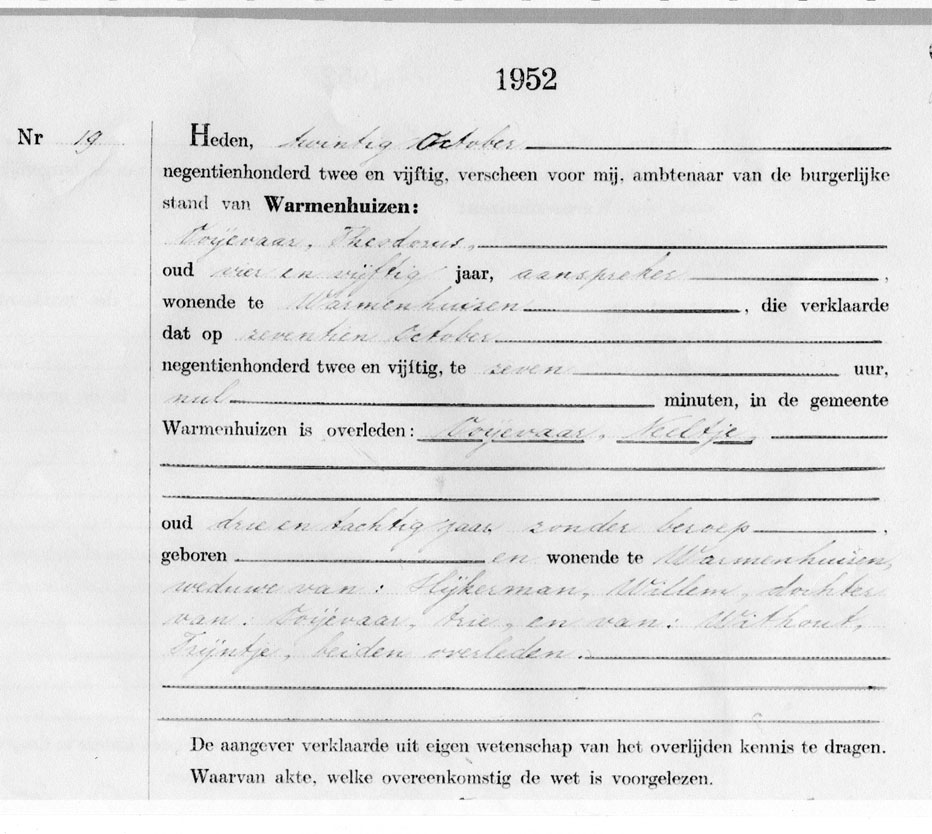 1952
Nr 19
Heden, twintig October
negentienhonderd twee en vijftig, verscheen voor mij, ambtenaar van de burgerlijke
stand van Warmenhuizen:
Ooijevaar, Theodorus,
oud vier en vijftig jaar, aanspreker ,
wonende te Warmenhuizen , die verklaarde
dat op zeventien October
negentienhonderd twee en vijftig, te zeven uur,
nul minuten, in de gemeente
Warmenhuizen is overleden: Ooijevaar, Neeltje,
oud drie en tachtig jaar, zonder beroep ,
geboren en wonende te Warmenhuizen,
weduwe van: Slijkerman, Willem, dochter
van: Ooijevaar, Arie, en van: Without,
Trijntje, beiden overleden.
De aangever verklaarde uit eigen wetenschap van het overlijden kennis te dragen.
Waarvan akte, welke overeenkomstig de wet is voorgelezen.